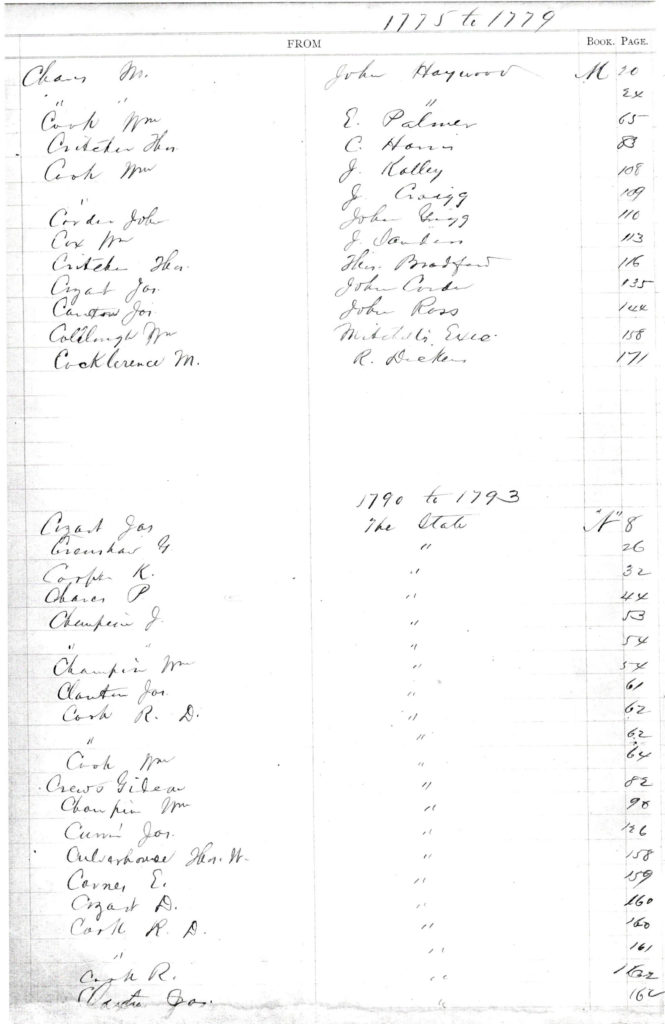 1775 to 1779
FROM Book. Page.
Chavis M. John Haywood M 20
" " " 24
Cook Wm E. Palmer 65
Critcher Thos C. Harris 83
Cook Wm J. Kolley 108
" J. Craigg 109
Corder John John Grigg 110
Cox Wm J. 113
Critcher Thos. Thos. Bradford 116
Cozart Jas. John Corder 135
Jas. John Ross 144
Wm Mitchel's Exec. 158
Cocklerence M. R. Dickens 171
1790 to 1793
Cozart Jas The State "N" 8
Crenshaw G " 26
Cooper K. " 32
Chavis P " 44
Champein J. " 53
" " " 54
Champin Wm " 54
Clanton Jas. " 61
Cook R. D. " 62
" " 62
Cook Wm " 64
Crews Gideon " 82
Champin Wm " 90
Currin Jas. " 126
Culverhouse Thos. W. " 158
Carnes E. " 159
Cozart D. " 160
Cook R. D. " 160
" " 161
Cook R. " 162
Jas. " 162